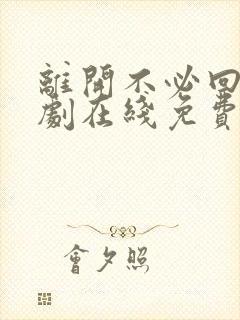 離開不必回
劇在綫免費
會夕照